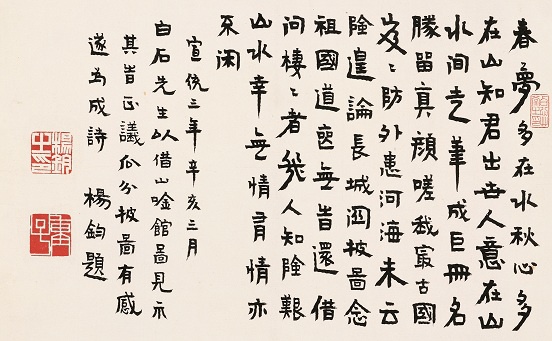 春夢多在水秋心多
在山知君出世人意在山
水間走筆成巨冊名
勝留真顏嗟我冣古國
岌〻防外患河海未云
險遑論長城固披圖念
祖國道喪無旹還借
問棲〻者幾人知險艱
山水幸無情有情亦
不閑
宣統三年辛亥三月
白石先生以借山唫館圖見示
其旹正議瓜分披圖有感
遂為成詩 楊鈞題